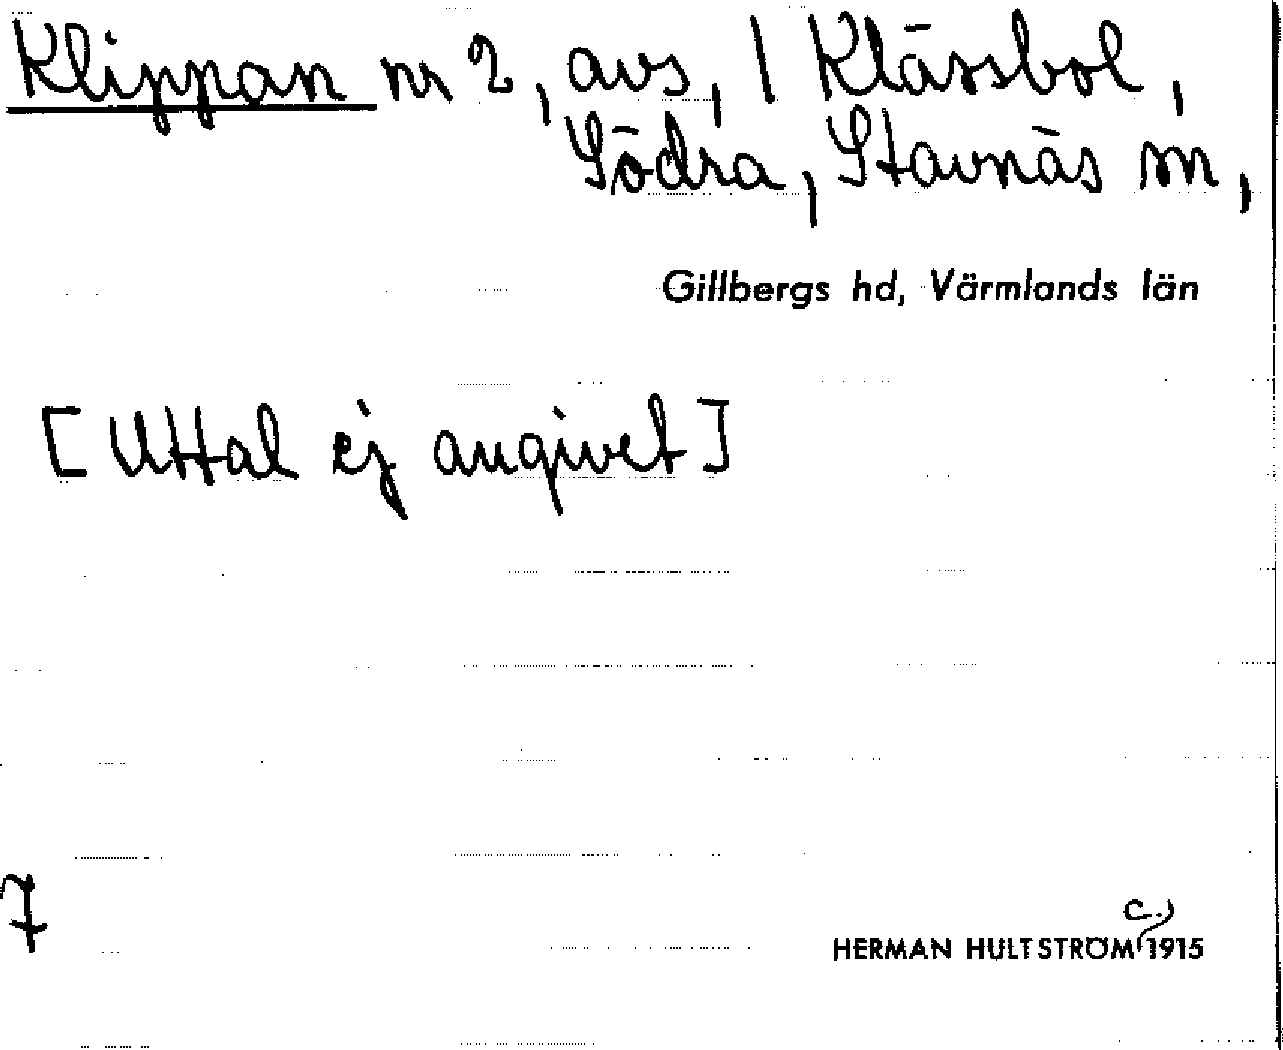 Klippan nr 2, avs, / Klässbol,
Södra, Stavnäs sn,
Gillbergs hd, Värmlands län
[Uttal ej angivet]
7
c.
HERMAN HULTSTRÖM 1915